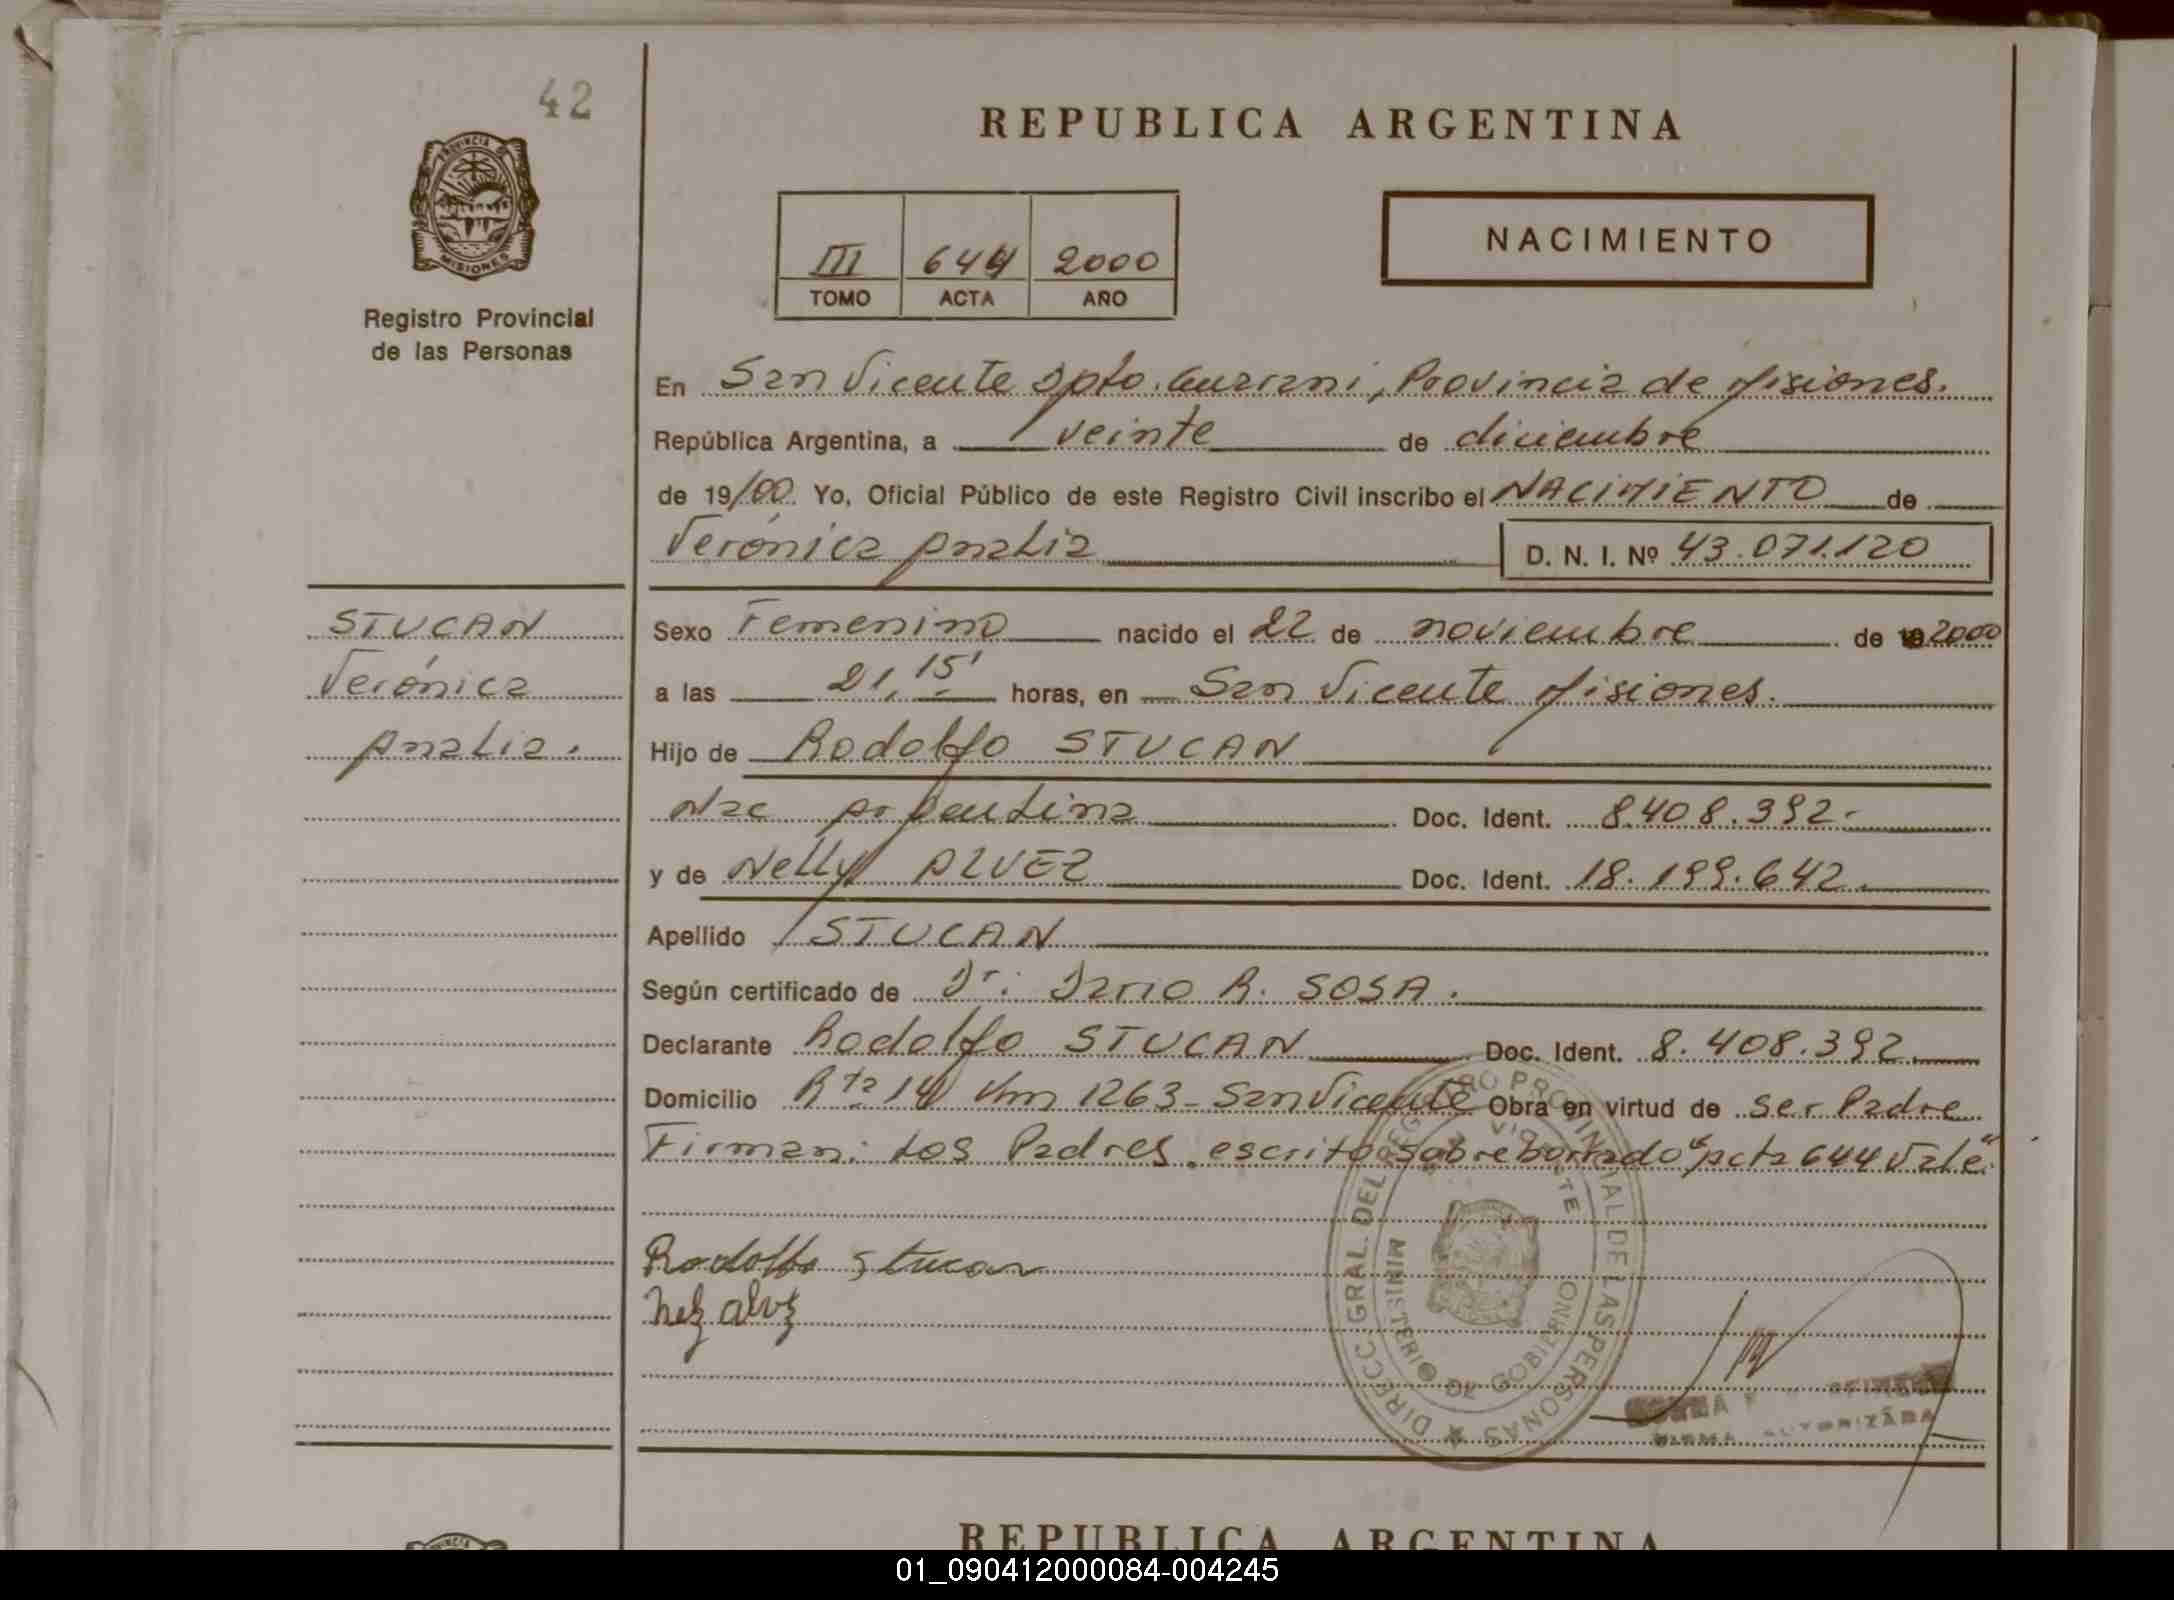 42
REPUBLICA ARGENTINA
PROVINCIA DE
MISIONES
Registro Provincial
de las Personas
III 644 2000
TOMO ACTA AÑO
NACIMIENTO
En San Vicente Dpto. Guarani, Provincia de Misiones.
República Argentina, a veinte de diciembre
de 19/00 Yo, Oficial Público de este Registro Civil inscribo el NACIMIENTO de
Verónica Analia D. N. I. Nº 43.071.120
STUCAN
Verónica
Analia.
Sexo Femenino nacido el 22 de noviembre de 2000
a las 21,15' horas, en San Vicente Misiones.
Hijo de Rodolfo STUCAN
Nac Argentina Doc. Ident. 8.408.392.-
y de Nelly ALVEZ Doc. Ident. 18.199.642.
Apellido STUCAN
Según certificado de Dr. Dario R. SOSA.
Declarante Rodolfo STUCAN Doc. Ident. 8.408.392
Domicilio Rta 14 Km 1263-San Vicente Obra en virtud de ser Padre
Firman: Los Padres. escrito sobreborrado "Acta 644 Vale".
Rodolfo Stucan
alvez
DIRECC. GRAL. DEL REGISTRO PROVINCIAL DE LAS PERSONAS
MINISTERIO DE GOBIERNO
FIRMA AUTORIZADA
REPUBLICA ARGENTINA
01_090412000084-004245